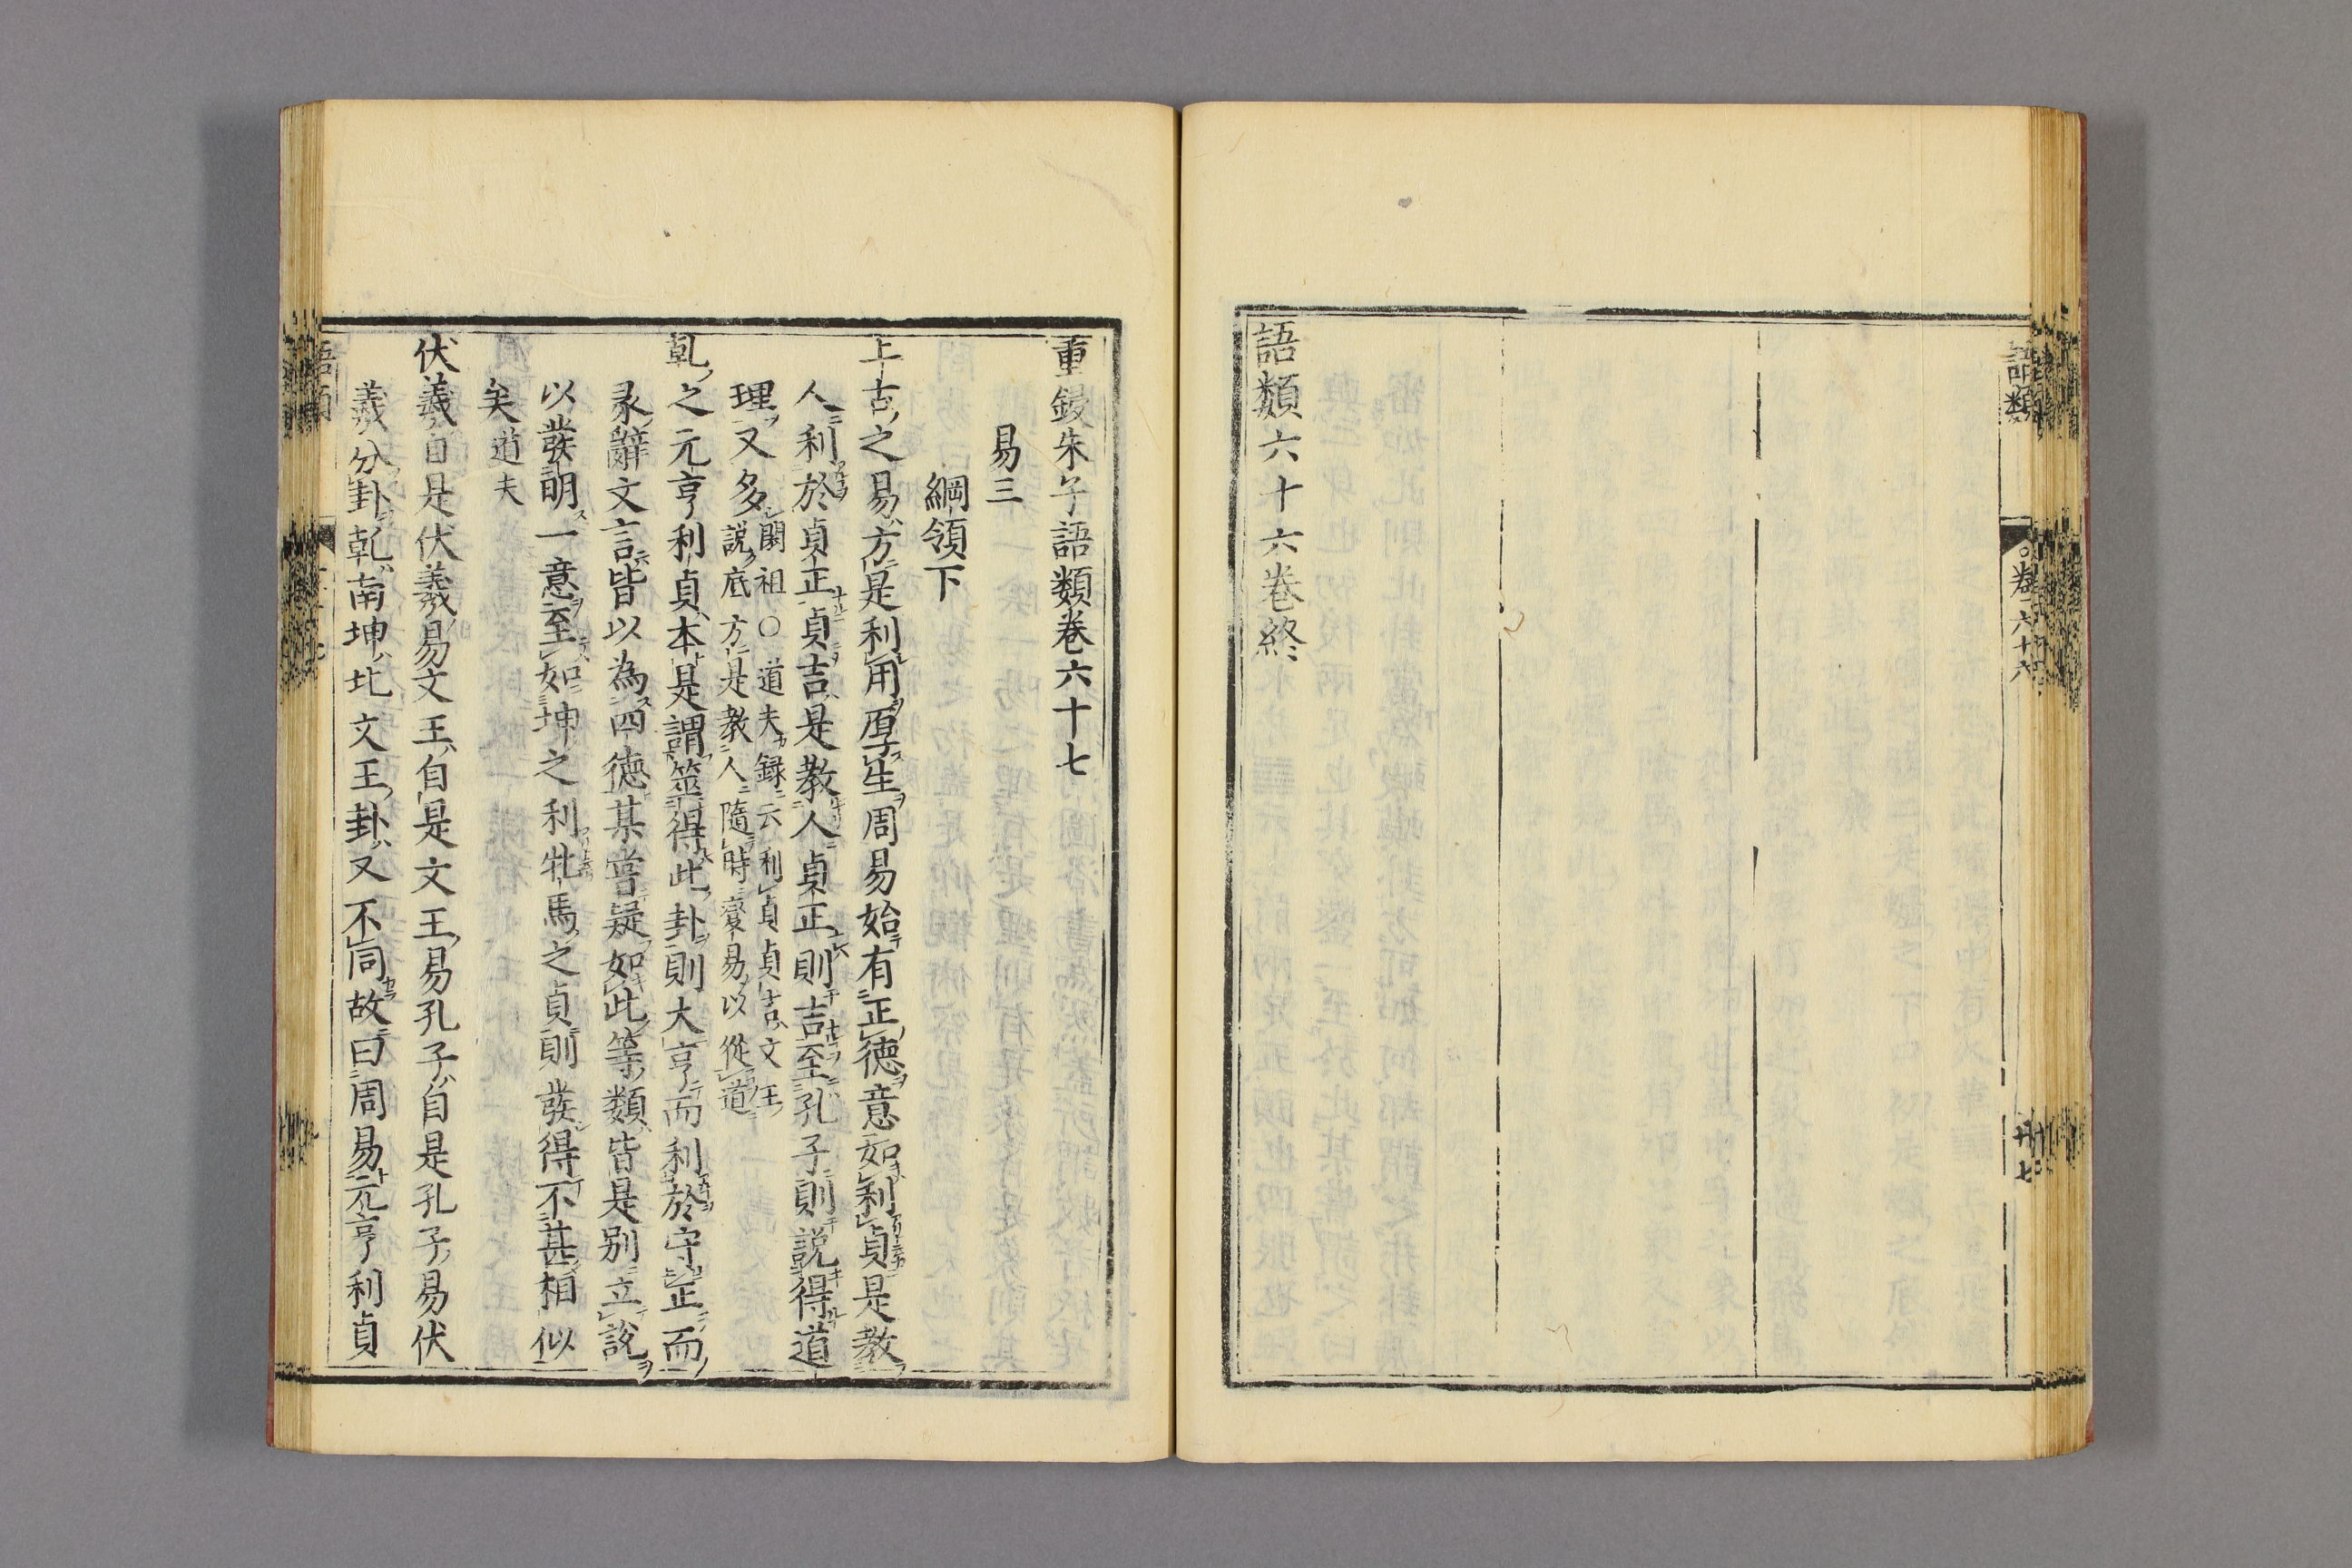 語類
卷六十六
廿七
語類六十六卷終
重鋟朱子語類卷六十七
易三
綱領下
上古之易方是利用厚生周易始有正德意如利貞是教
人利於貞正貞吉是教人貞正則吉至孔子則說得道
理又多閎祖○道夫錄云利貞貞吉文王
說底方是教人隨時變易以從道
乹之元亨利貞本是謂筮得此卦則大亨而利於守正而
彖辭文言皆以為四德某嘗疑如此等類皆是別立說
以發明一意至如坤之利牝馬之貞則發得不甚相似
矣道夫
伏羲自是伏羲易文王自是文王易孔子自是孔子易伏
羲分卦乹南坤北文王卦又不同故曰周易元亨利貞